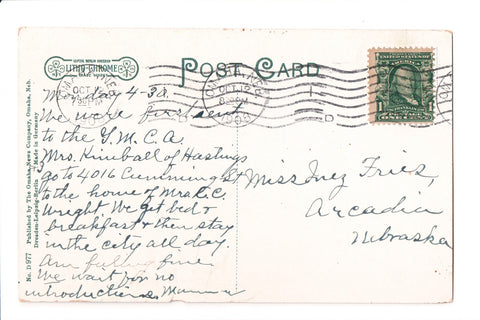 LITHO-CHROME
POST CARD
OCT 12
8 PM
Monday 4-30.
We were first sent
to the Y.M.C.A.
Mrs. Kimball of Hastings
go to 4016 Cumming St
to the home of Mrs. C.
Wright We get bed &
breakfast & then stay
in the city all day.
Am feeling fine
We wait for no
introductions. Mamma
Miss Inez Fries,
Arcadia
Nebraska
No. D 977 Published by The Omaha News Company, Omaha, Neb.
Dresden-Leipzig-Berlin Made in Germany